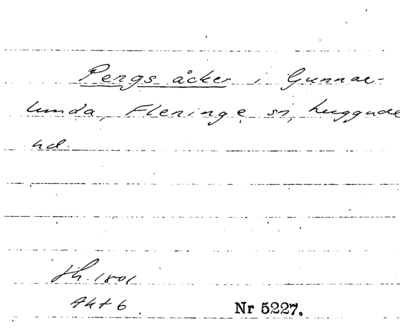 Pengs åcker i Gunnar-
lunda, Fleninge sn, Luggude
hd.
Sh. 1801
Akt 6
Nr 5227.